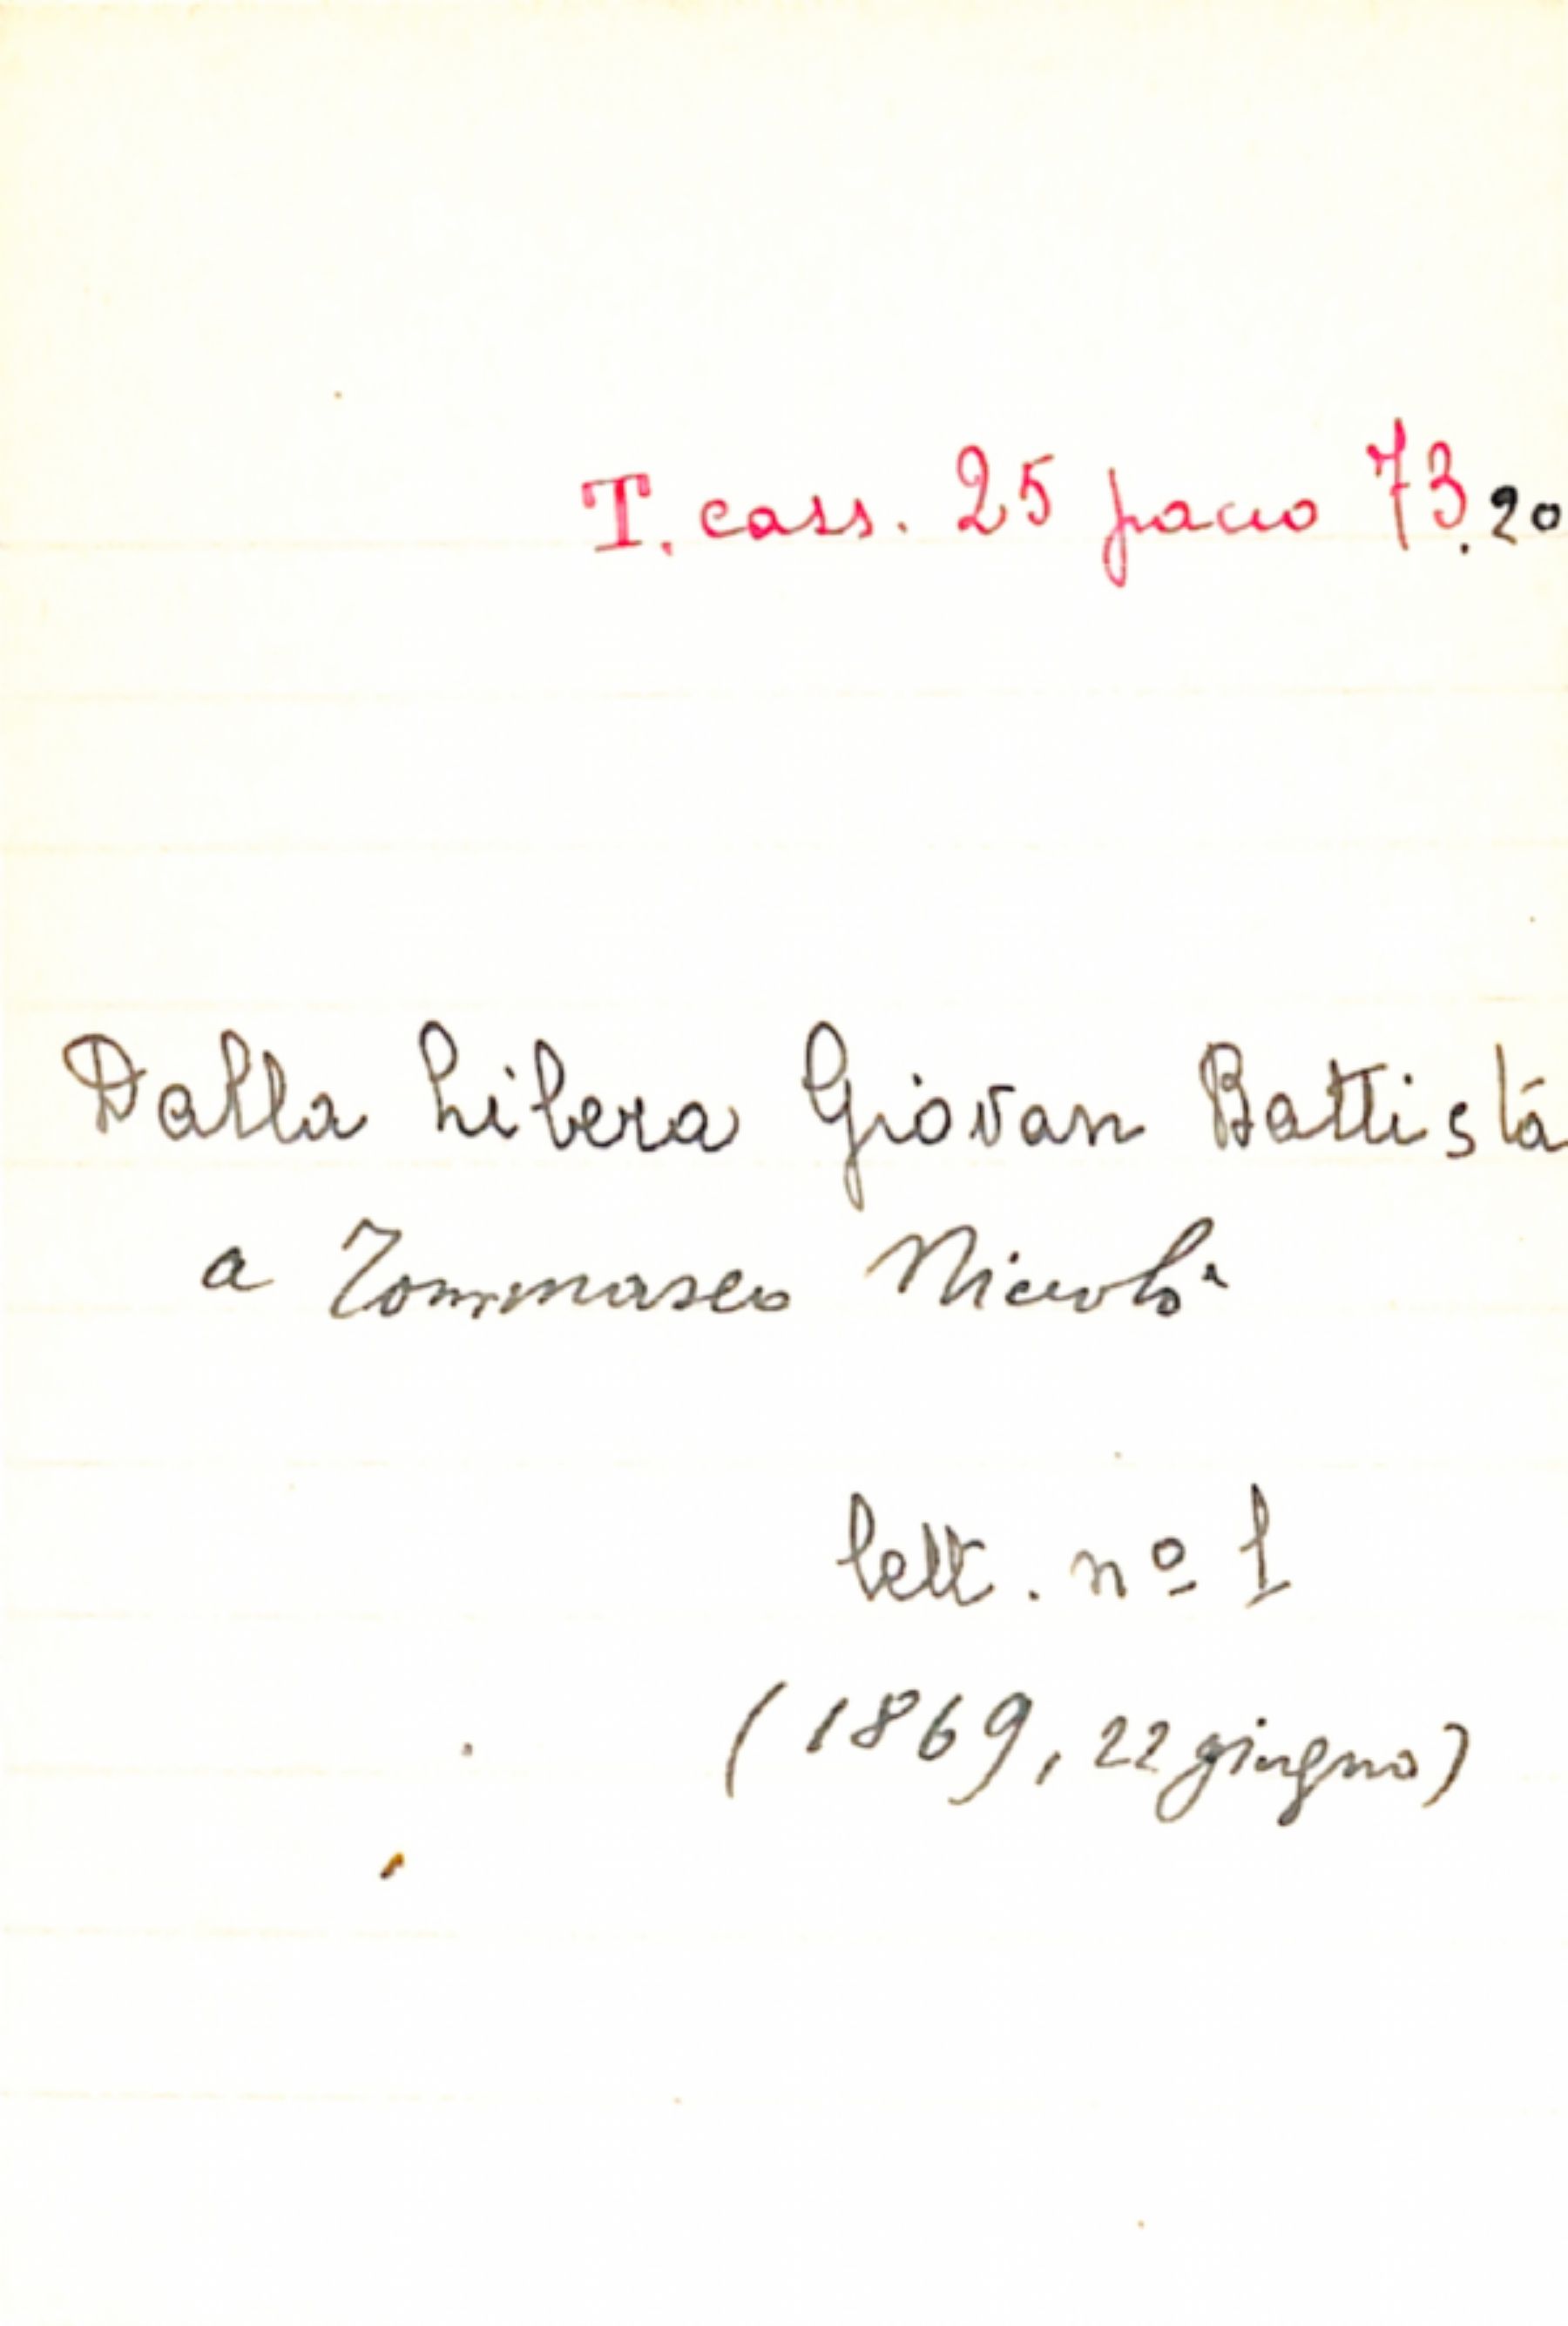 T. cass. 25 pacco 73.20
Dalla Libera Giovan Battista
a Tommaseo Niccolò
lett. nº 1
(1869, 22 giugno)